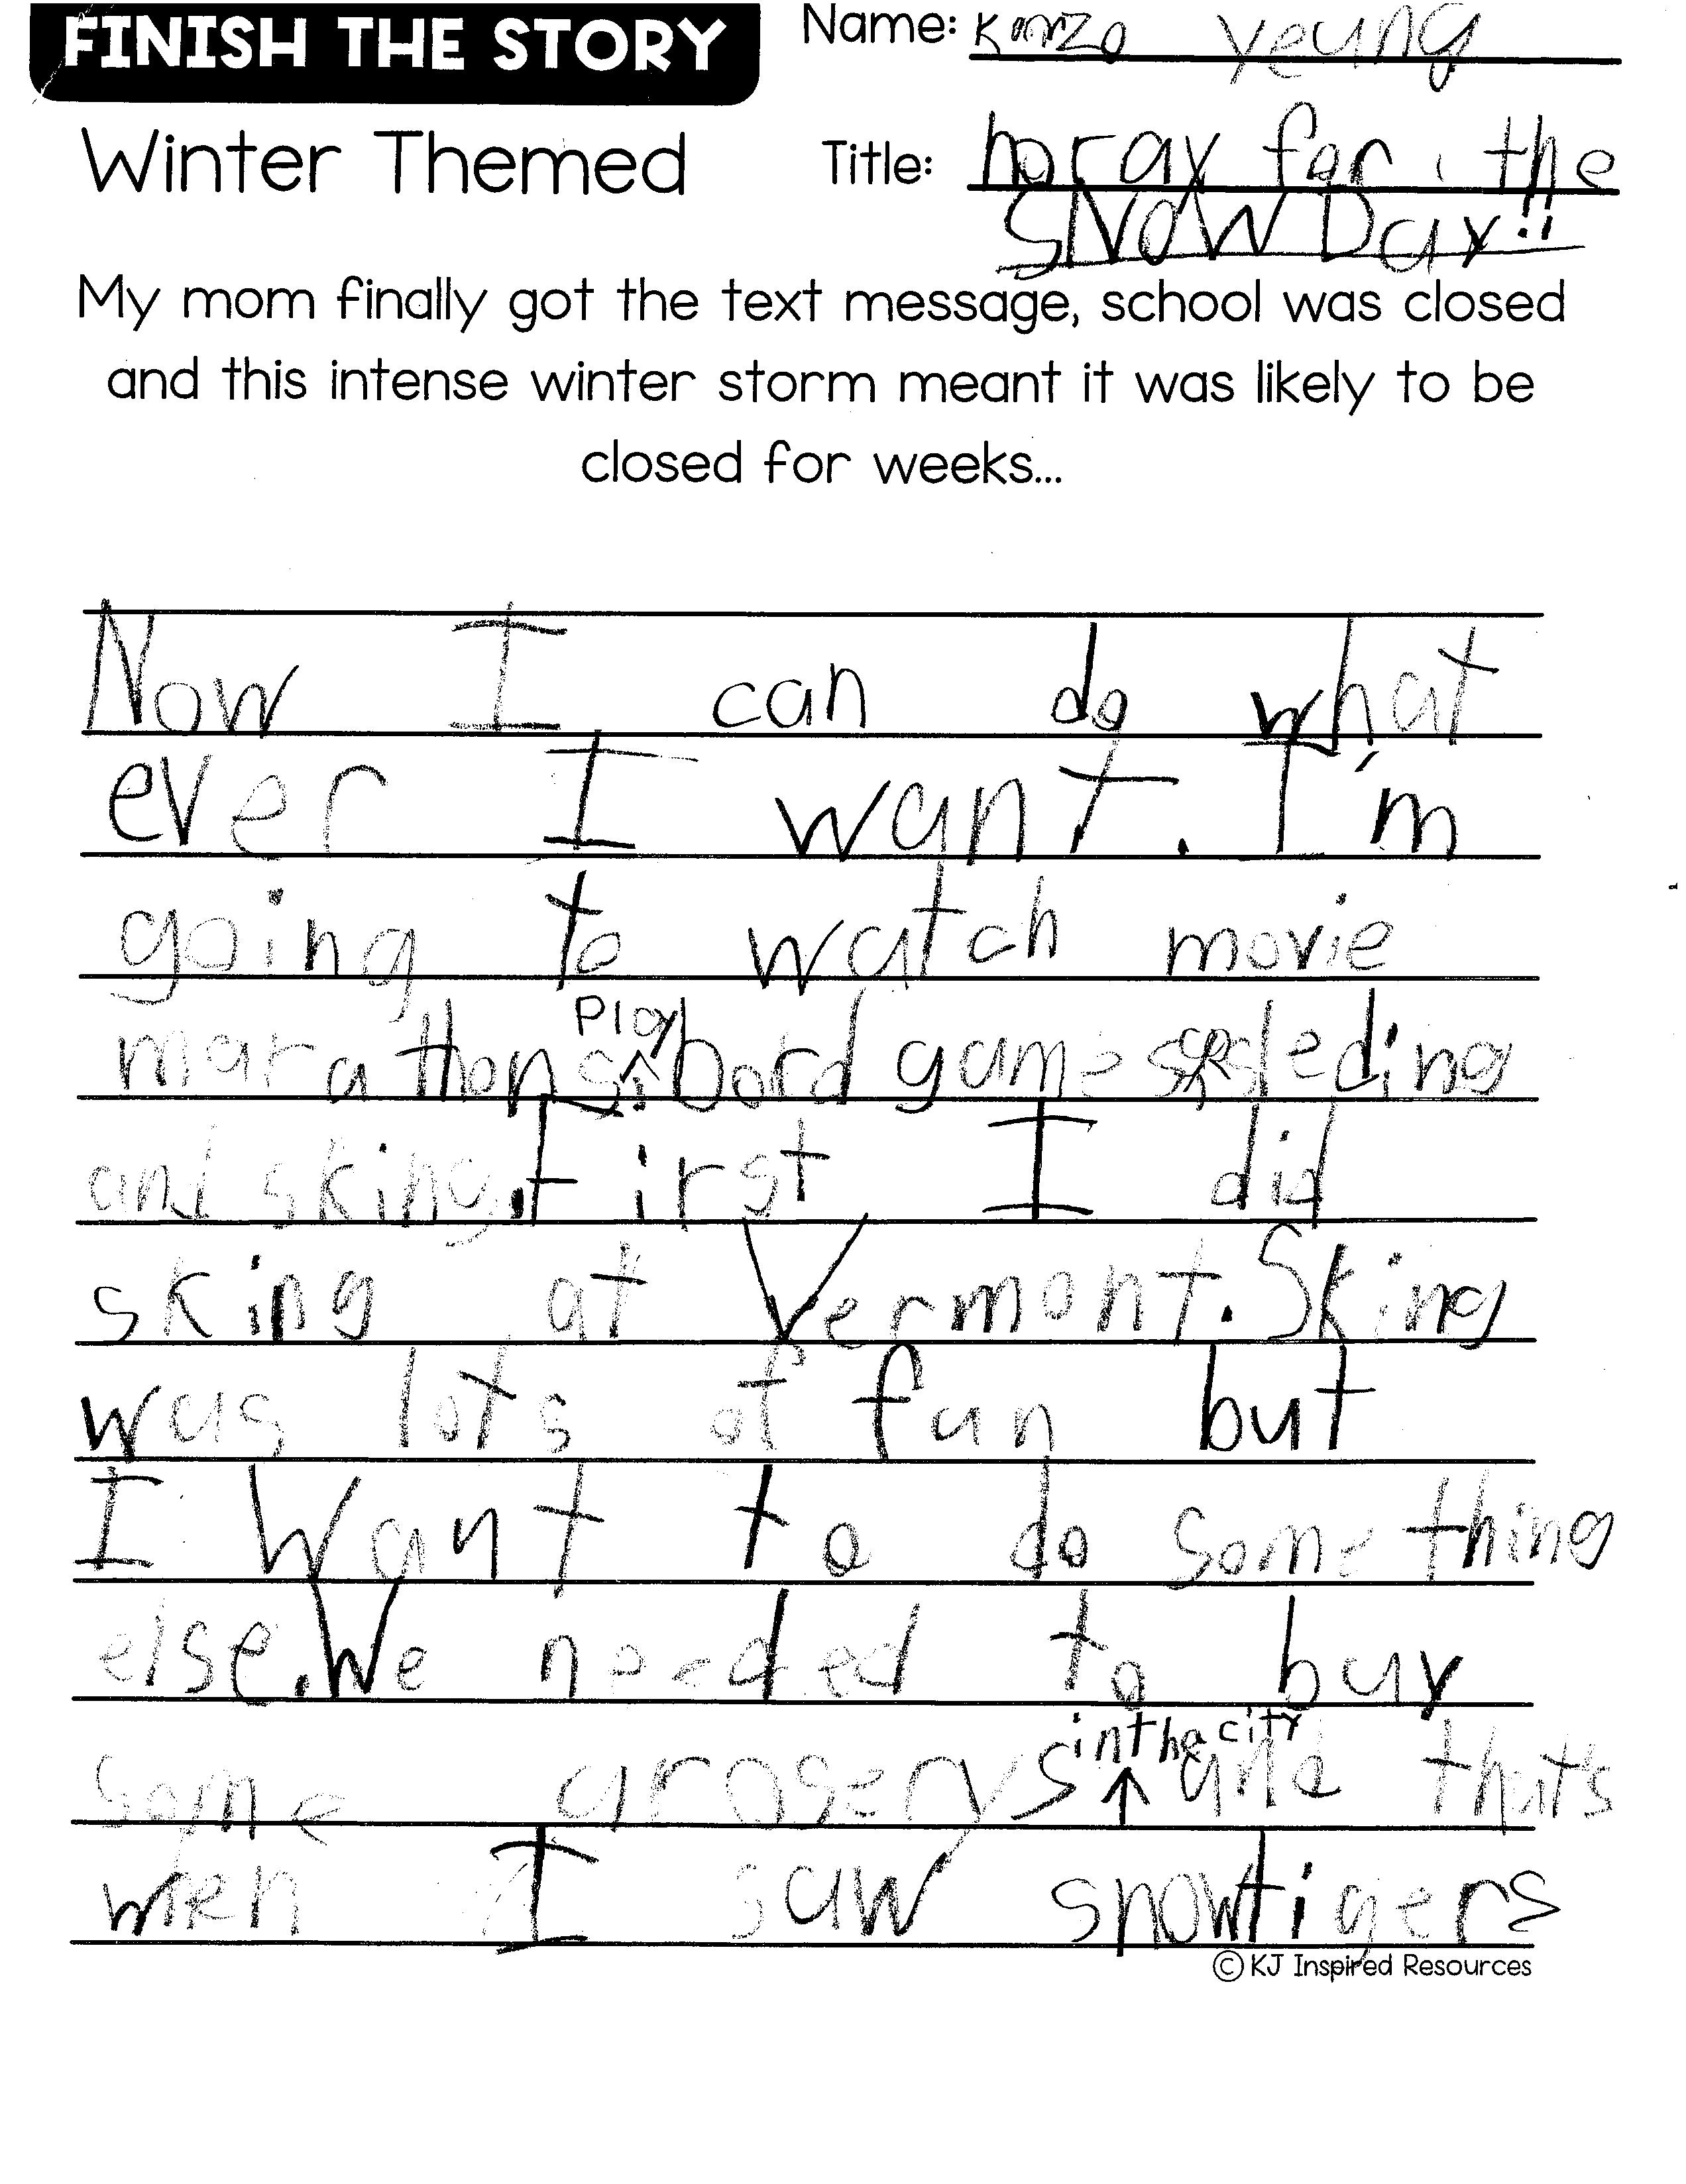 FINISH THE STORY
Name: Kenzo Yeung
Winter Themed
Title: horay for the
SNOW Day!!
My mom finally got the text message, school was closed
and this intense winter storm meant it was likely to be
closed for weeks...
Now I can do what
ever I want. I'm
going to watch movie
play
marathons, bord games sleding
and sking. First I did
sking at Vermont. Sking
was lots of fun but
I want to do something
else. We needed to buy
in the city
some grosery s and that's
when I saw snowtigers
© KJ Inspired Resources